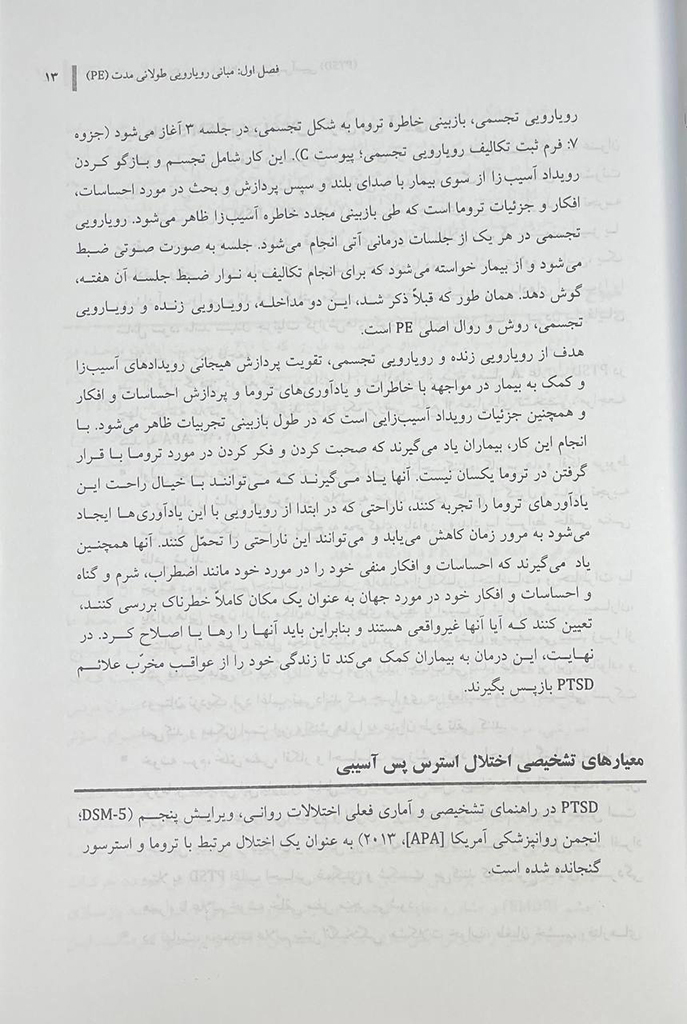 فصل اول: مبانی رویارویی طولانی مدت (PE) ۱۳
رویارویی تجسمی، بازبینی خاطره تروما به شکل تجسمی، در جلسه ۳ آغاز می‌شود (جزوه
۷: فرم ثبت تکالیف رویارویی تجسمی؛ پیوست C). این کار شامل تجسم و بازگو کردن
رویداد آسیب‌زا از سوی بیمار با صدای بلند و سپس پردازش و بحث در مورد احساسات،
افکار و جزئیات تروما است که طی بازبینی مجدد خاطره آسیب‌زا ظاهر می‌شود. رویارویی
تجسمی در هر یک از جلسات درمانی آتی انجام می‌شود. جلسه به صورت صوتی ضبط
می‌شود و از بیمار خواسته می‌شود که برای انجام تکالیف به نوار ضبط جلسه آن هفته،
گوش دهد. همان طور که قبلاً ذکر شد، این دو مداخله، رویارویی زنده و رویارویی
تجسمی، روش و روال اصلی PE است.
هدف از رویارویی زنده و رویارویی تجسمی، تقویت پردازش هیجانی رویدادهای آسیب‌زا
و کمک به بیمار در مواجهه با خاطرات و یادآوری‌های تروما و پردازش احساسات و افکار
و همچنین جزئیات رویداد آسیب‌زایی است که در طول بازبینی تجربیات ظاهر می‌شود. با
انجام این کار، بیماران یاد می‌گیرند که صحبت کردن و فکر کردن در مورد تروما با قرار
گرفتن در تروما یکسان نیست. آنها یاد می‌گیرند که می‌توانند با خیال راحت این
یادآورهای تروما را تجربه کنند، ناراحتی که در ابتدا از رویارویی با این یادآوری‌ها ایجاد
می‌شود به مرور زمان کاهش می‌یابد و می‌توانند این ناراحتی را تحمّل کنند. آنها همچنین
یاد می‌گیرند که احساسات و افکار منفی خود را در مورد خود مانند اضطراب، شرم و گناه
و احساسات و افکار خود در مورد جهان به عنوان یک مکان کاملاً خطرناک بررسی کنند،
تعیین کنند که آیا آنها غیرواقعی هستند و بنابراین باید آنها را رها یا اصلاح کرد. در
نهایت، این درمان به بیماران کمک می‌کند تا زندگی خود را از عواقب مخرّب علائم
PTSD بازپس بگیرند.
معیارهای تشخیصی اختلال استرس پس آسیبی
PTSD در راهنمای تشخیصی و آماری فعلی اختلالات روانی، ویرایش پنجم (DSM-5؛
انجمن روانپزشکی آمریکا [APA]، ۲۰۱۳) به عنوان یک اختلال مرتبط با تروما و استرسور
گنجانده شده است.